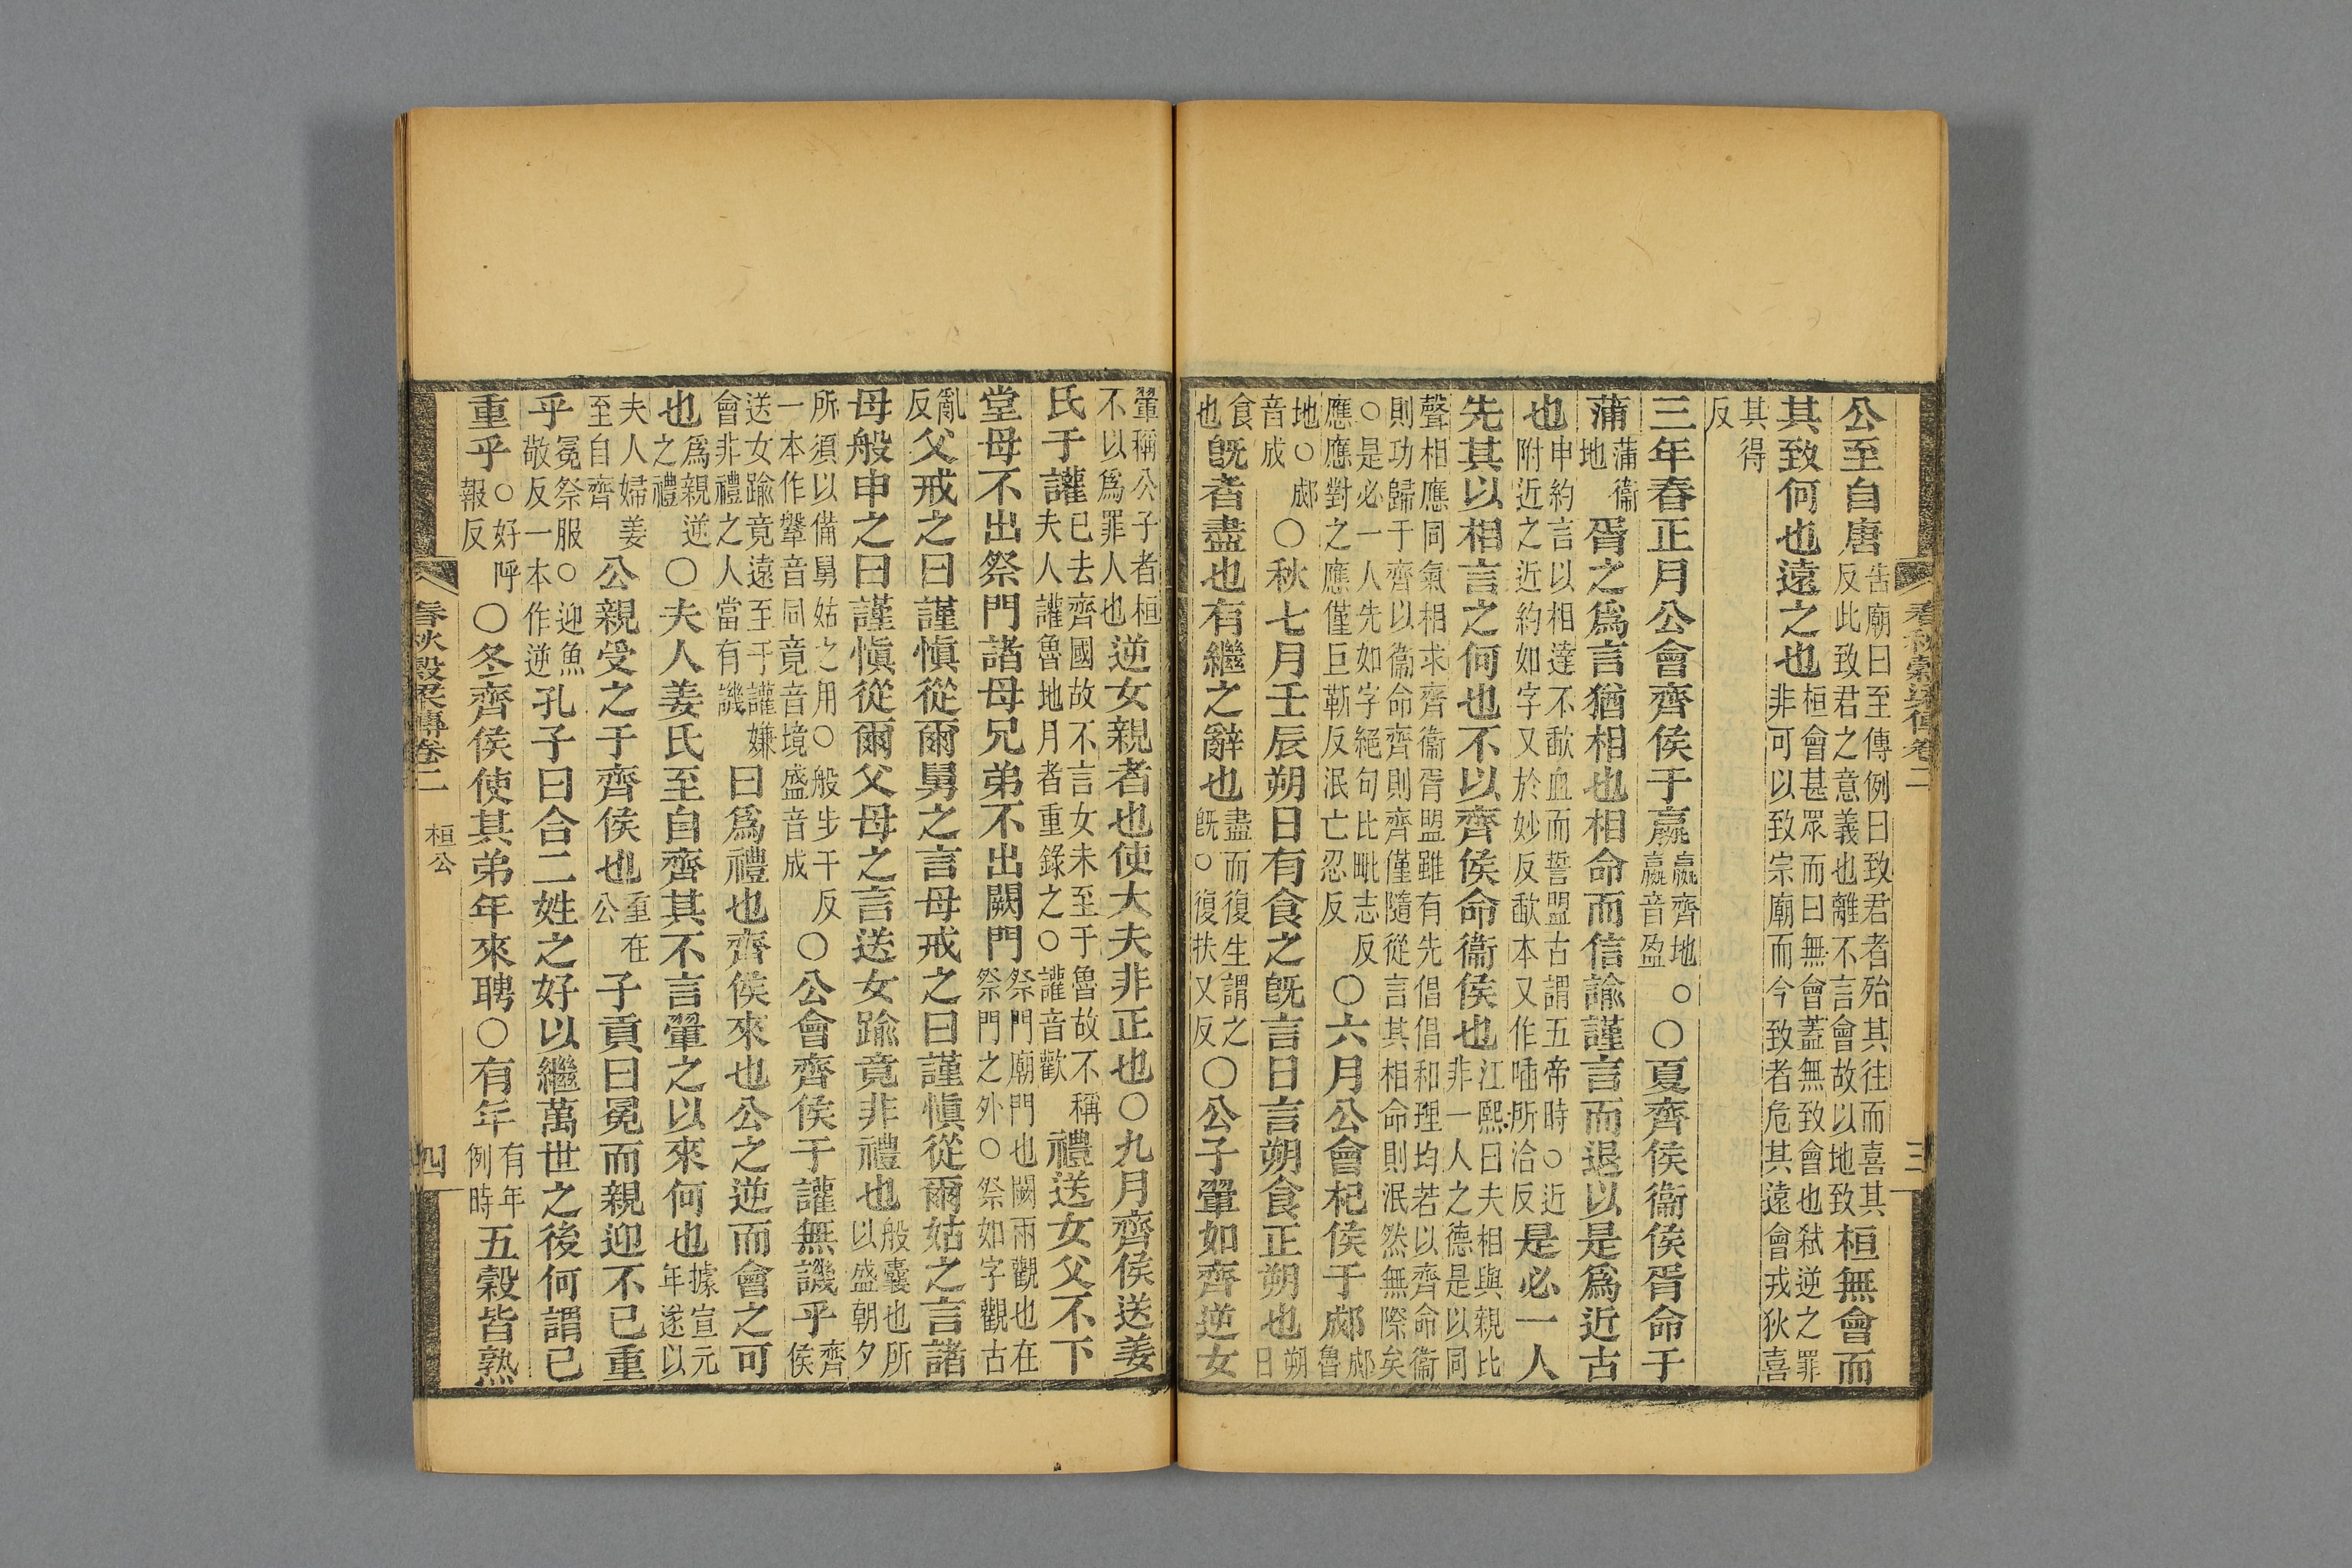 春秋穀梁傳卷二
三
公至自唐告廟曰至傳例曰致君者殆其往而喜其反此致君之意義也離不言會故以地致桓無會而
其致何也遠之也桓會甚眾而曰無會蓋無致會也弑逆之罪非可以致宗廟而今致者危其遠會戎狄喜
其得反
三年春正月公會齊侯于嬴嬴齊地○嬴音盈○夏齊侯衞侯胥命于
蒲蒲衞地胥之爲言猶相也相命而信諭謹言而退以是爲近古
也申約言以相達不歃血而誓盟古謂五帝時○近附近之近約如字又於妙反歃本又作唼所洽反是必一人
先其以相言之何也不以齊侯命衞侯也江熙曰夫相與親比非一人之德是以同
聲相應同氣相求齊衞胥盟雖有先倡倡和理均若以齊命衞則功歸于齊以衞命齊則齊僅隨從言其相命則泯然無際矣
○是必一人先如字絕句比毗志反應應對之應僅巨靳反泯亡忍反○六月公會杞侯于郕郕魯
地○郕音成○秋七月壬辰朔日有食之旣言日言朔食正朔也朔日
食也旣者盡也有繼之辭也盡而復生謂之旣○復扶又反○公子翬如齊逆女
翬稱公子者桓不以爲罪人也逆女親者也使大夫非正也○九月齊侯送姜
氏于讙已去齊國故不言女未至于魯故不稱夫人讙魯地月者重錄之○讙音歡禮送女父不下
堂母不出祭門諸母兄弟不出闕門祭門廟門也闕兩觀也在祭門之外○祭如字觀古
亂反父戒之曰謹愼從爾舅之言母戒之曰謹愼從爾姑之言諸
母般申之曰謹愼從爾父母之言送女踰竟非禮也般囊也所以盛朝夕
所須以備舅姑之用○般步干反一本作鞶音同竟音境盛音成○公會齊侯于讙無譏乎齊侯
送女踰竟遠至于讙嫌會非禮之人當有譏曰爲禮也齊侯來也公之逆而會之可
也爲親逆之禮○夫人姜氏至自齊其不言翬之以來何也據宣元年遂以
夫人婦姜至自齊公親受之于齊侯也重在公子貢曰冕而親迎不已重
乎冕祭服○迎魚敬反一本作逆孔子曰合二姓之好以繼萬世之後何謂已
重乎○好呼報反○冬齊侯使其弟年來聘○有年有年例時五穀皆熟
春秋穀梁傳卷二
桓公
四